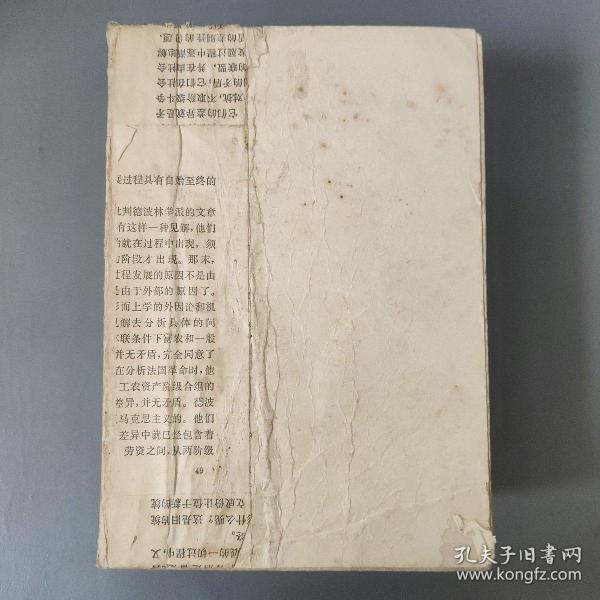 它们的差异就是矛
对抗，不取阶级斗争
的矛盾；它们在社会
的联盟，并在由社会
发展过程中逐渐地解
盾的差别性的问题，
过程具有自始至终的
批判德波林学派的文章
有这样一种见解，他们
就在过程中出现，须
阶段才出现。那末，
程发展的原因不是由
是由于外部的原因了。
而上学的外因论和机
解去分析具体的问
联条件下富农和一般
并无矛盾，完全同意了
在分析法国革命时，他
工农资产阶级合组的
差异，并无矛盾。德波
马克思主义的。他们
差异中就已经包含着
劳资之间，从两阶级
69
的一切过程中，又
终。
什么呢？这是旧的统
立成份让位于新的统
孔夫子旧书网
www.kongfz.com